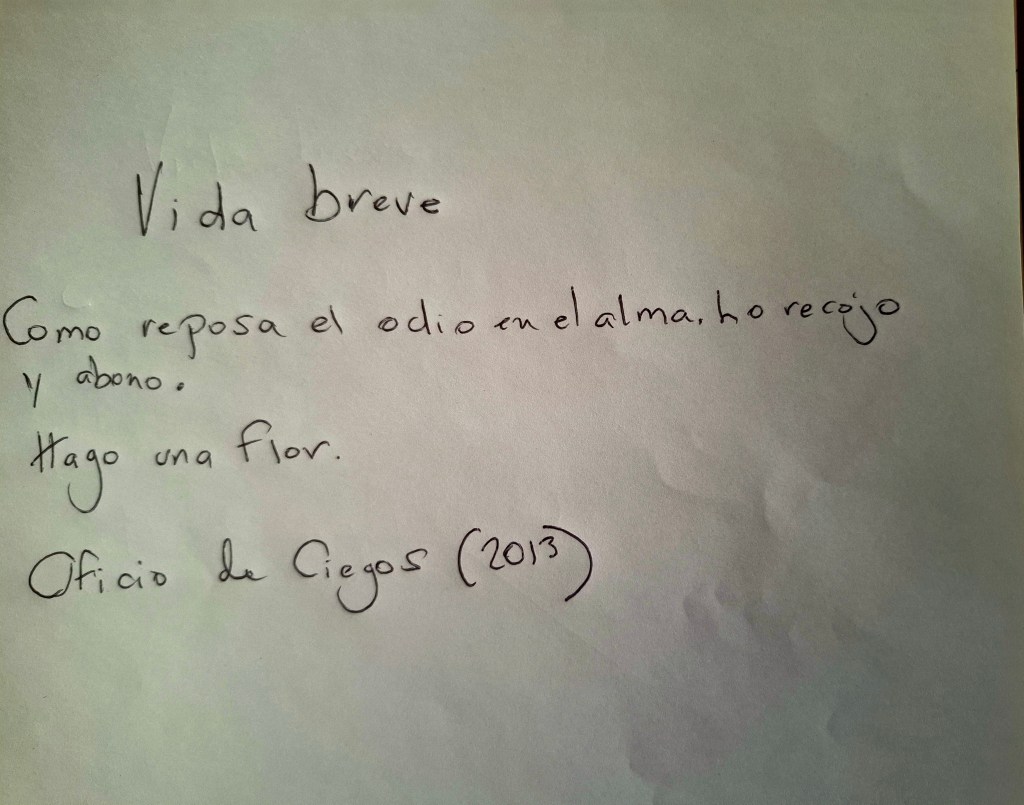 Vida breve
Como reposa el odio en el alma. lo recojo
y abono.
Hago una flor.
Oficio de Ciegos (2013)